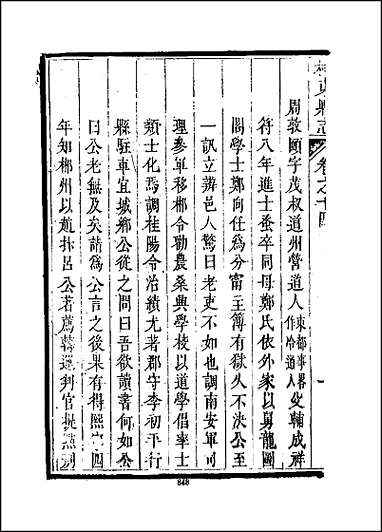 桂東縣志
卷之十四
一
周敦頤字茂叔道州營道人東都事畧作冷道人父輔成祥
符八年進士蚤卒同母鄭氏依外家以舅龍圖
閣學士鄭向任為分甯主簿有獄久不決公至
一訊立辨邑人驚曰老吏不如也調南安軍司
理參軍移郴令勸農桑興學校以道學倡率士
類士化焉調桂陽令治績尤著郡守李初平行
縣駐車宜城鄉公從之問曰吾欲讀書何如公
曰公老無及矣請為公言之後果有得熙寧四
年知郴州以趙抃呂公著薦轉運判官提點刑
848